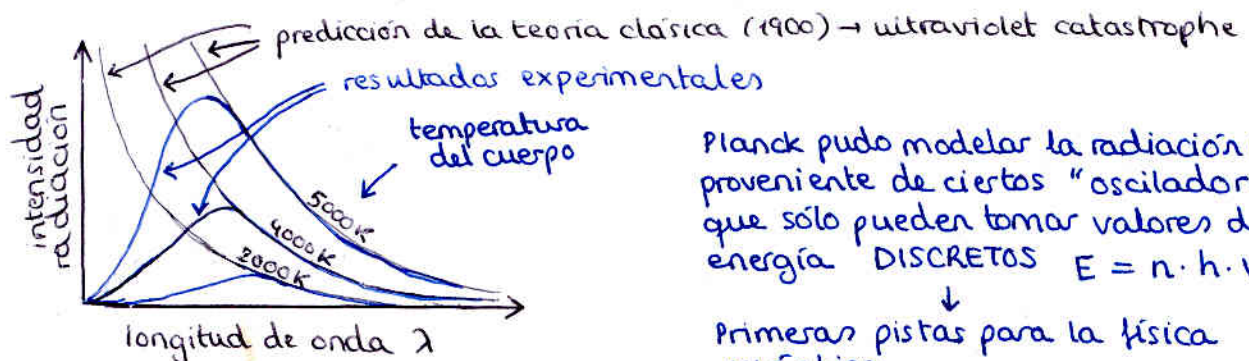 predicción de la teoría clásica (1900) → ultraviolet catastrophe
resultados experimentales
temperatura
del cuerpo
intensidad
radiación
5000K
4000K
3000K
longitud de onda λ
Planck pudo modelar la radiación
proveniente de ciertos "oscilador
que sólo pueden tomar valores d
energía DISCRETOS E = n · h ·
↓
Primeras pistas para la física